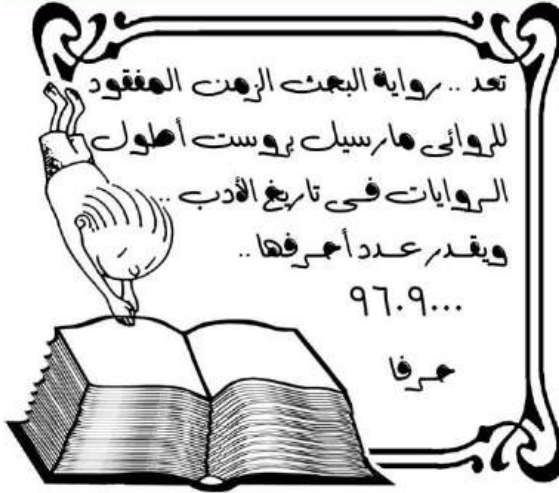 تعد .. رواية البحث الزمن المفقود
للروائى مارسيل بروست أطول
الروايات فى تاريخ الأدب ..
ويقدر عدد أحرفها ..
٩٦٠٩٠٠٠
حرفا